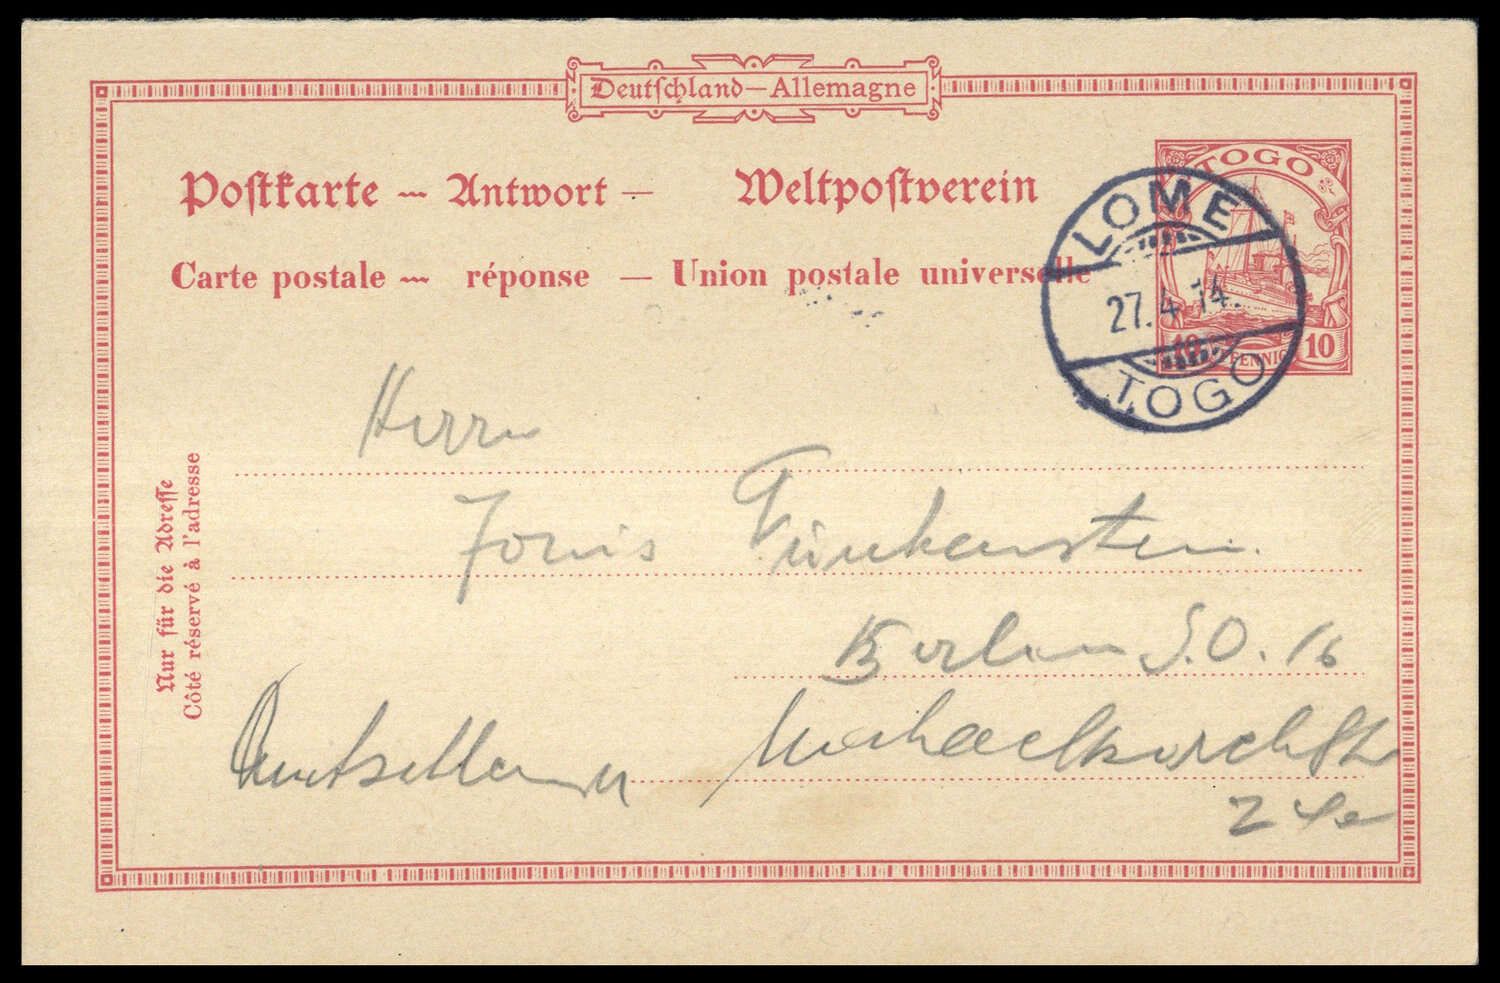 Deutschland—Allemagne
Postkarte — Antwort — Weltpostverein
Carte postale — réponse — Union postale universelle
TOGO
10 PFENNIG 10
LOME
27.4.14.
TOGO
Nur für die Adresse
Côté réservé à l'adresse
Herrn
Berlin S.O. 16
Deutschland